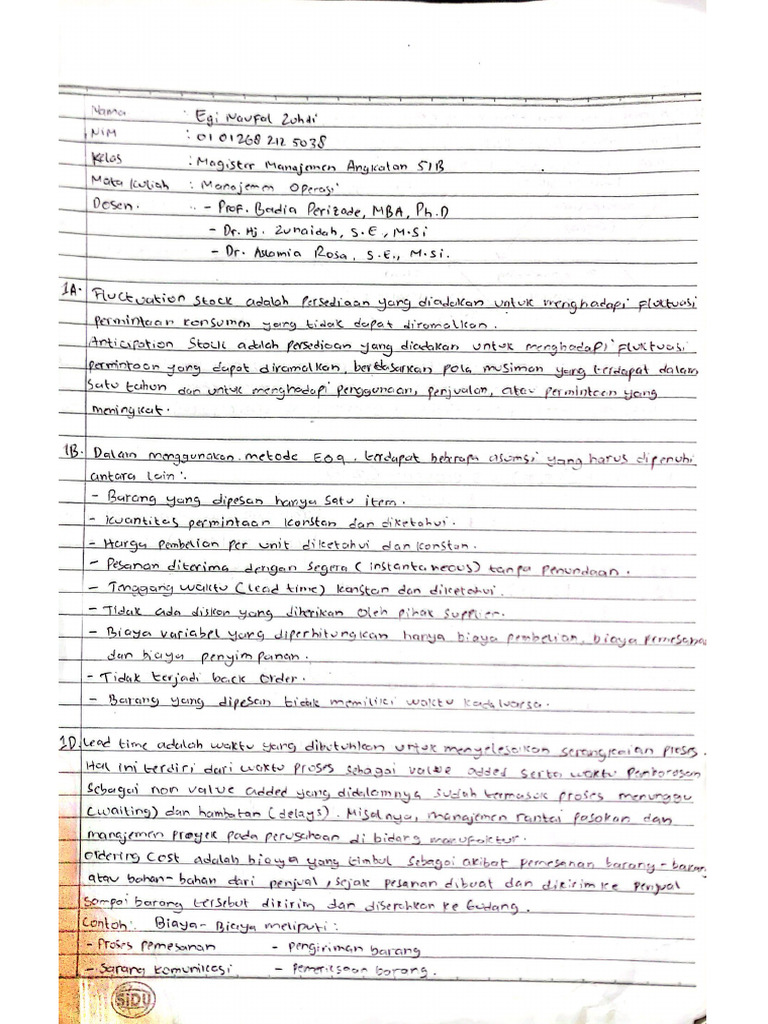 Nama : Egi Naufal Zuhdi
NIM : 01 01268 212 5038
Kelas : Magister Manajemen Angkatan 51B
Mata Kuliah : Manajemen Operasi
Dosen : - Prof. Badia Perizade, MBA, Ph.D
- Dr. Hj. Zunaidah, S.E, M.Si
- Dr. Aslamia Rosa, S.E., M.Si.
1A. Fluctuation Stock adalah Persediaan yang diadakan untuk menghadapi fluktuasi
permintaan konsumen yang tidak dapat diramalkan.
Anticipation Stock adalah persediaan yang diadakan untuk menghadapi fluktuasi
permintaan yang dapat diramalkan, berdasarkan pola musiman yang terdapat dalam
satu tahun dan untuk menghadapi penggunaan, penjualan, atau permintaan yang
meningkat.
1B. Dalam menggunakan metode EOQ, terdapat beberapa asumsi yang harus dipenuhi
antara lain :
- Barang yang dipesan hanya satu item.
- Kuantitas permintaan konstan dan diketahui.
- Harga pembelian per unit diketahui dan konstan.
- Pesanan diterima dengan segera (instantaneous) tanpa penundaan.
- Tenggang waktu (lead time) konstan dan diketahui.
- Tidak ada diskon yang diberikan oleh pihak supplier.
- Biaya variabel yang diperhitungkan hanya biaya pembelian, biaya pemesana
dan biaya penyimpanan.
- Tidak terjadi back order.
- Barang yang dipesan tidak memiliki waktu kadaluarsa.
1D. Lead time adalah waktu yang dibutuhkan untuk menyelesaikan serangkaian proses.
Hal ini terdiri dari waktu proses sebagai value added serta waktu pemborosan
sebagai non value added yang didalamnya sudah termasuk proses menunggu
(waiting) dan hambatan (delays). Misalnya, manajemen rantai pasokan dan
manajemen proyek pada perusahaan di bidang manufaktur.
Ordering Cost adalah biaya yang timbul sebagai akibat pemesanan barang-barang
atau bahan-bahan dari penjual, sejak pesanan dibuat dan dikirim ke penjual
sampai barang tersebut dikirim dan diserahkan ke Gudang.
Contoh : Biaya-Biaya meliputi :
- Proses pemesanan - pengiriman barang
- Sarana komunikasi - pemeriksaan barang.
SiDU